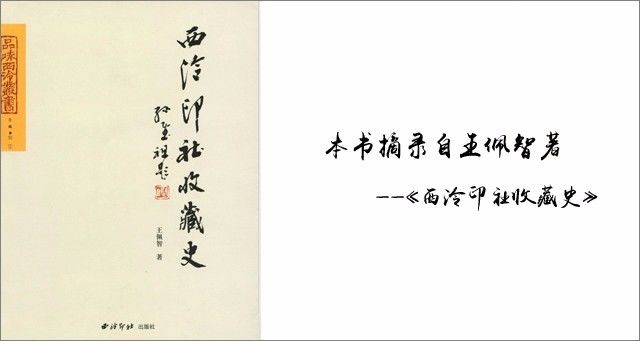 品味西泠叢書
西泠印社收藏史
孙慰祖题
王佩智 著
西泠印社 出版社
本书摘录自王佩智著
--《西泠印社收藏史》